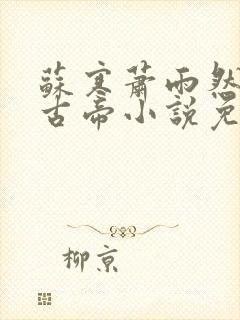 蘇寒蕭雨然
古帝小說免
柳京